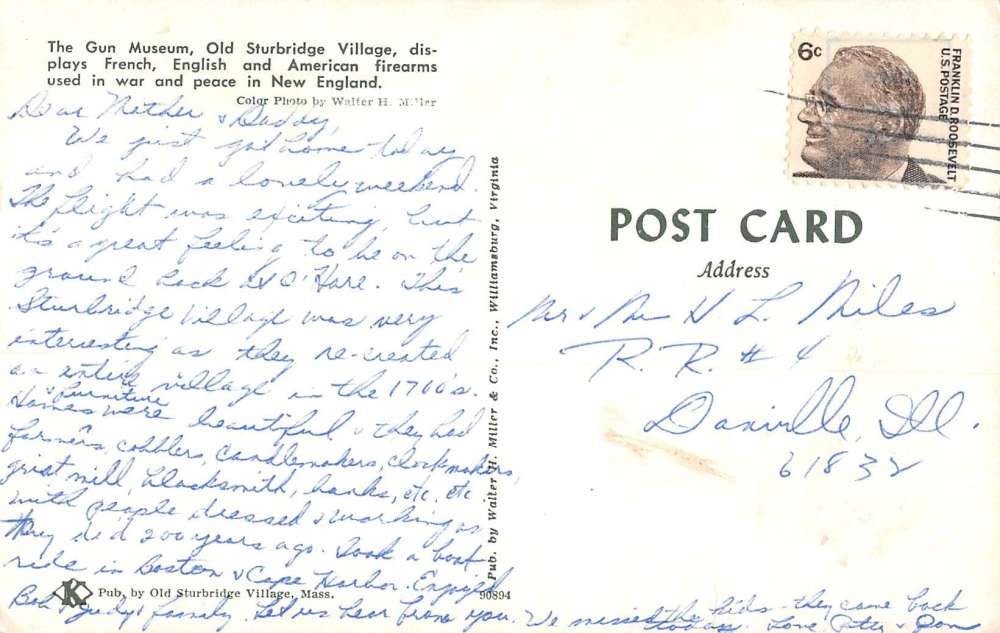 The Gun Museum, Old Sturbridge Village, dis-
plays French, English and American firearms
used in war and peace in New England.
Color Photo by Walter H. Miller
Dear Mother & Daddy,
We just got home today
and had a lovely weekend.
The flight was exciting, but
it's a great feeling to be on the
ground back at O'Hare. This
Sturbridge Village was very
interesting as they re-created
an entire village in the 1700's.
Homes & furniture were beautiful & they had
farmers, cobblers, candlemakers, clockmakers,
grist mill, blacksmith, banks, etc. etc.
with people dressed & working as
they did 200 years ago. Took a boat
ride in Boston & Cape Harbor. Enjoyed
Bob & Judy & family. Let us hear from you. We missed the kids - they came back
today. Love, & Don
Pub. by Old Sturbridge Village, Mass.
90894
Pub. by Walter H. Miller & Co., Inc., Williamsburg, Virginia
6c
FRANKLIN D. ROOSEVELT
U.S. POSTAGE
POST CARD
Address
Mr & Mrs H. L. Niles
R. R. # 4
Danville, Ill.
61832